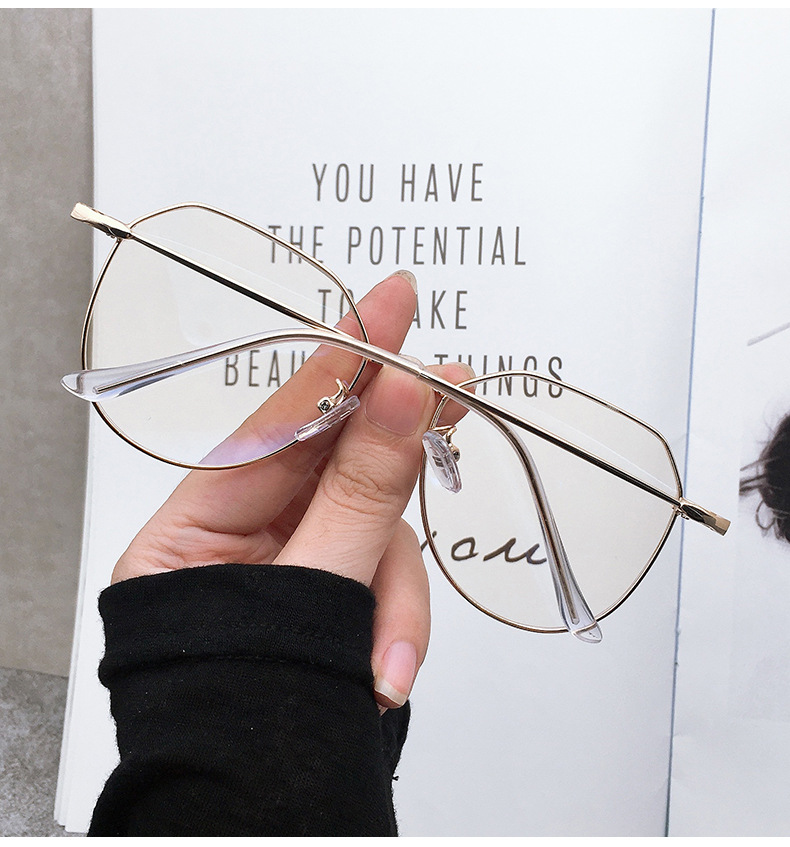 YOU HAVE
THE POTENTIAL
TO MAKE
BEAUTIFUL THINGS
you